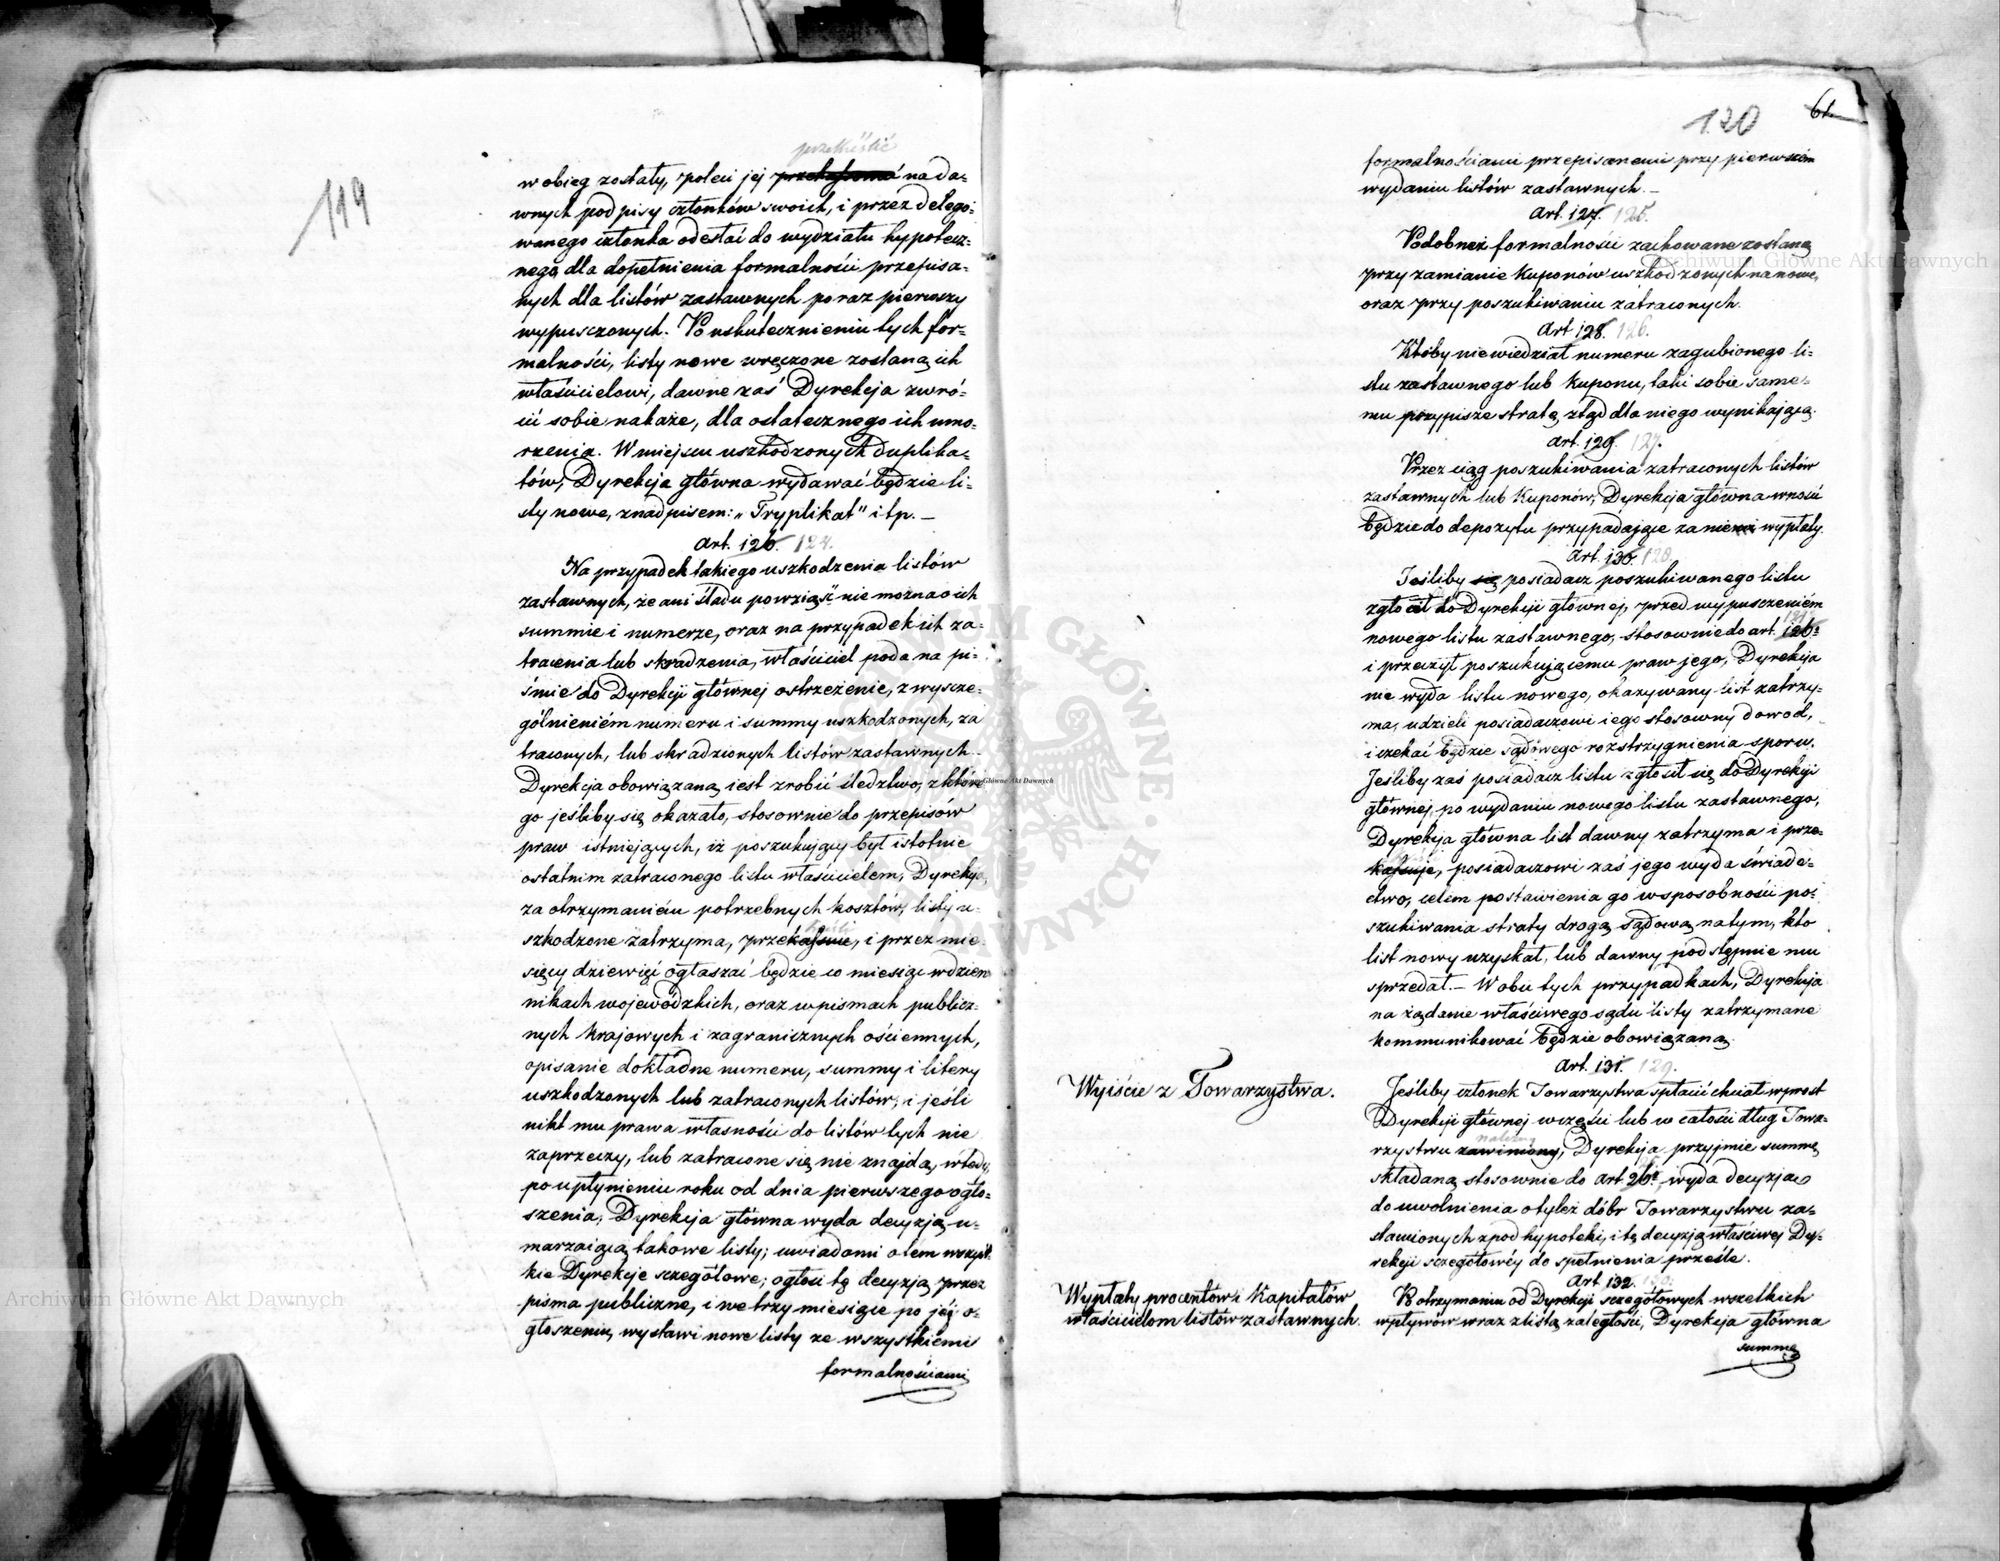 119
przekréślić
w obieg zostały, poleci jej na da=
wnych podpisy członków swoich, i przez delego=
wanego członka odesłać do wydziału hypotecz=
nego dla dopełnienia formalności przepisa=
nych dla listów zastawnych po raz pierwszy
wypuszczonych. Po uskutecznieniu tych for=
malności, listy nowe wręczone zostaną ich
właścicielowi, dawne zaś Dyrekcja zwró=
cić sobie nakaże, dla ostatecznego ich umo=
rzenia. W miejscu uszkodzonych duplika=
tów, Dyrekcja główna wydawać będzie li=
sty nowe, z nadpisem: „Tryplikat" itp. —
Art. 126. 124.
Na przypadek takiego uszkodzenia listów
zastawnych, że ani śladu powziąść nie można o ich
summie i numerze, oraz na przypadek ich za=
tracenia lub skradzenia, właściciel poda na pi=
śmie do Dyrekcji głównej ostrzeżenie, z wyszcze=
gólnieniém numeru i summy uszkodzonych, za
traconych, lub skradzionych listów zastawnych.
Dyrekcja obowiązaną iest zrobić śledztwo, z które
go jeśliby się okazało, stosownie do przepisów
praw istniejących, iż poszukujący był istotnie
ostatnim zatraconego listu właścicielem, Dyrekcja,
za otrzymaniém potrzebnych kosztów, listy u=
szkodzone zatrzyma, przekassuie, i przez mie
sięcy dziewięć ogłaszać będzie co miesiąc w dzien
nikach wojewódzkich, oraz w pismach publicz=
nych krajowych i zagranicznych ościennych,
opisanie dokładne numeru, summy i litery
uszkodzonych lub zatraconych listów, i jeśli
nikt mu prawa własności do listów tych nie
zaprzeczy, lub zatracone się nie znajdą, wtedy,
po upłynieniu roku od dnia pierwszego ogło=
szenia, Dyrekcja główna wyda decyzją u=
marzaiącą takowe listy; uwiadomi o tem wszyst=
kie Dyrekcje szczegółowe; ogłosi tę decyzją przez
pisma publiczne, i we trzy miesiące po jéj o=
głoszeniu, wystawi nowe listy ze wszystkiemi
formalnościami
120
61.
formalnościami przepisanemi przy pierwszém
wydaniu listów zastawnych. —
Art. 127. 125.
Podobneż formalności zachowane zostaną
przy zamianie kuponów uszkodzonych na nowe,
oraz przy poszukiwaniu zatraconych.
Art 128. 126.
Ktoby nie wiedział numeru zagubionego li=
stu zastawnego lub kuponu, taki sobie same=
mu przypisze stratę ztąd dla niego wynikającą.
Art. 129. 127.
Przez ciąg poszukiwania zatraconych listów
zastawnych lub kuponów, Dyrekcja główna wnosić
będzie do depozytu przypadające za nie wypłaty.
Art. 130. 128.
Jeśliby się posiadacz poszukiwanego listu
zgłosił do Dyrekcji głównej, przed wypuszczeniém
nowego listu zastawnego, stosownie do art. 126=
i przeczył poszukującemu praw jego, Dyrekcja
nie wyda listu nowego, okazywany list zatrzy=
ma, udzieli posiadaczowi jego stosowny dowód,
i czekać będzie sądowego rozstrzygnienia sporu.
Jeśliby zaś posiadacz listu zgłosił się do Dyrekcji
głównej, po wydaniu nowego listu zastawnego,
Dyrekcja główna list dawny zatrzyma i prze=
kassuje, posiadaczowi zaś jego wyda świade=
ctwo, celem postawienia go w sposobności po=
szukiwania straty drogą sądową na tym, kto
list nowy uzyskał, lub dawny podstępnie mu
sprzedał. — W obu tych przypadkach, Dyrekcja
na żądanie właściwego sądu listy zatrzymane
kommunikować będzie obowiązaną.
Art. 131. 129.
Wyjście z Towarzystwa.
Jeśliby członek Towarzystwa spłacić chciał wprost
Dyrekcji głównej w części lub w całości dług Towa=
należny
rzystwu zawiniony, Dyrekcja przyjmie summę
składaną stosownie do art. 26º, wyda decyzją
do uwolnienia o tyleż dóbr Towarzystwu za=
stawionych z pod hypoteki, i tę decyzją właściwej Dy=
rekcji szczegółowéj do spełnienia prześle.
Art. 132.
Wypłaty procentów i kapitałów
właścicielom listów zastawnych.
Po otrzymaniu od Dyrekcji szczegółowych wszelkich
wpływów wraz z listą zaległości, Dyrekcja główna
summę
Archiwum Główne Akt Dawnych
Archiwum Główne Akt Dawnych
Archiwum Główne Akt Dawnych